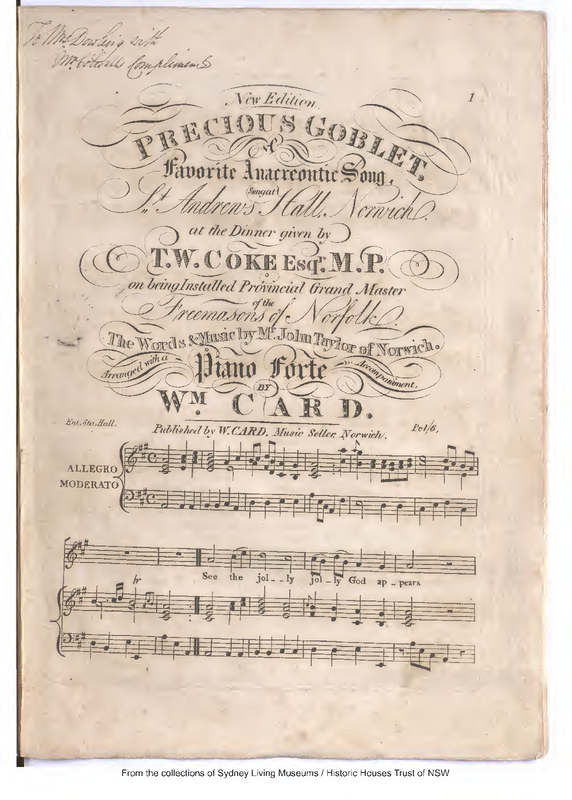 To Mrs Dowling with
Compliments
1
New Edition.
PRECIOUS GOBLET,
A
Favorite Anacreontic Song,
Sung at
St. Andrew's Hall, Norwich.
at the Dinner given by
T.W. COKE ESQr. M.P.
on being Installed Provincial Grand Master
of the
Freemasons of Norfolk
The Words & Music by Mr. John Taylor of Norwich.
Arranged with a Piano Forte Accompaniment,
BY
WM. CARD.
Ent. Sta. Hall.
Published by W. CARD, Music Seller, Norwich.
Pr. 1/6.
ALLEGRO
MODERATO
See the jol--ly jol-ly God ap-pears
tr
From the collections of Sydney Living Museums / Historic Houses Trust of NSW